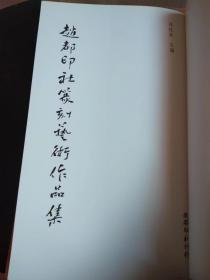 趙都印社篆刻藝術作品集
主编